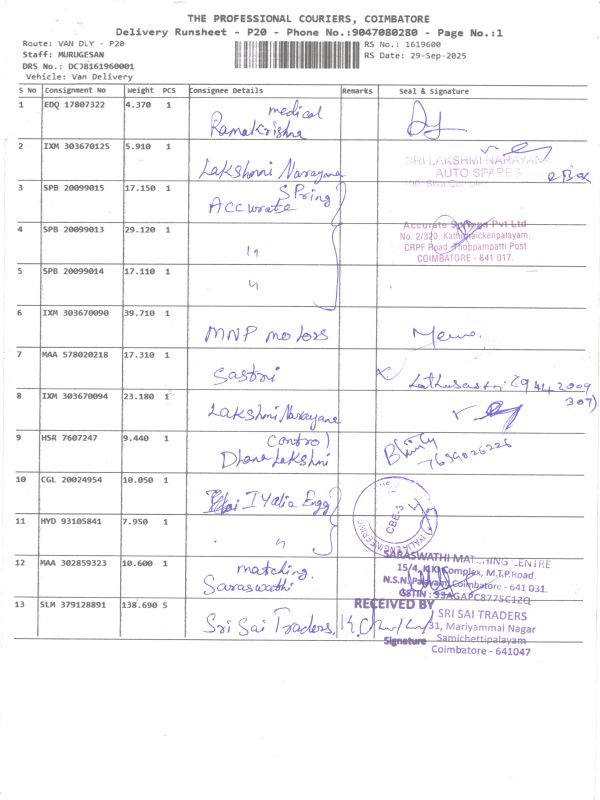 THE PROFESSIONAL COURIERS, COIMBATORE
Delivery Runsheet - P20 - Phone No.:9047080280 - Page No.:1
Route: VAN DLY - P20
Staff: MURUGESAN
DRS No.: DCJB161960001
Vehicle: Van Delivery
RS No.: 1619600
RS Date: 29-Sep-2025
S No Consignment No Weight PCS Consignee Details Remarks Seal & Signature
1 EDQ 17807322 4.370 1
medical
Ramakrishna
2 IXM 303670125 5.910 1
Lakshmi Narayana
SRI LAKSHMI NARAYANA
AUTO SPARES
3 SPB 20099015 17.150 1
SPring
Accurate
4 SPB 20099013 29.120 1
"
Accurate Springs Pvt Ltd
No. 2/320, Kathirnaickenpalayam,
CRPF Road, Thoppampatti Post
COIMBATORE - 641 017.
5 SPB 20099014 17.110 1
"
6 IXM 303670090 39.710 1
MNP motors
7 MAA 578020218 17.310 1
Sastri
Lathusastri (944 2009
307)
8 IXM 303670094 23.180 1
Lakshmi Narayana
9 HSR 7607247 9.440 1
control
Dhana Lakshmi
7639026226
10 CGL 20024954 10.050 1
Iyalia Engg
CBE-3
ENGINEERING
11 HYD 93105841 7.950 1
"
12 MAA 302859323 10.600 1
matching
Saraswathi
SARASWATHI MATCHING CENTRE
15/4, KIKI Complex, M.T.P.Road
N.S.N. Palayam, Coimbatore - 641 031.
GSTIN : 33AGAPC8775C1ZQ
13 SLM 379128891 138.690 5
Sri Sai Traders,
RECEIVED BY
SRI SAI TRADERS
31, Mariyammal Nagar
Samichettipalayam
Coimbatore - 641047
Signature